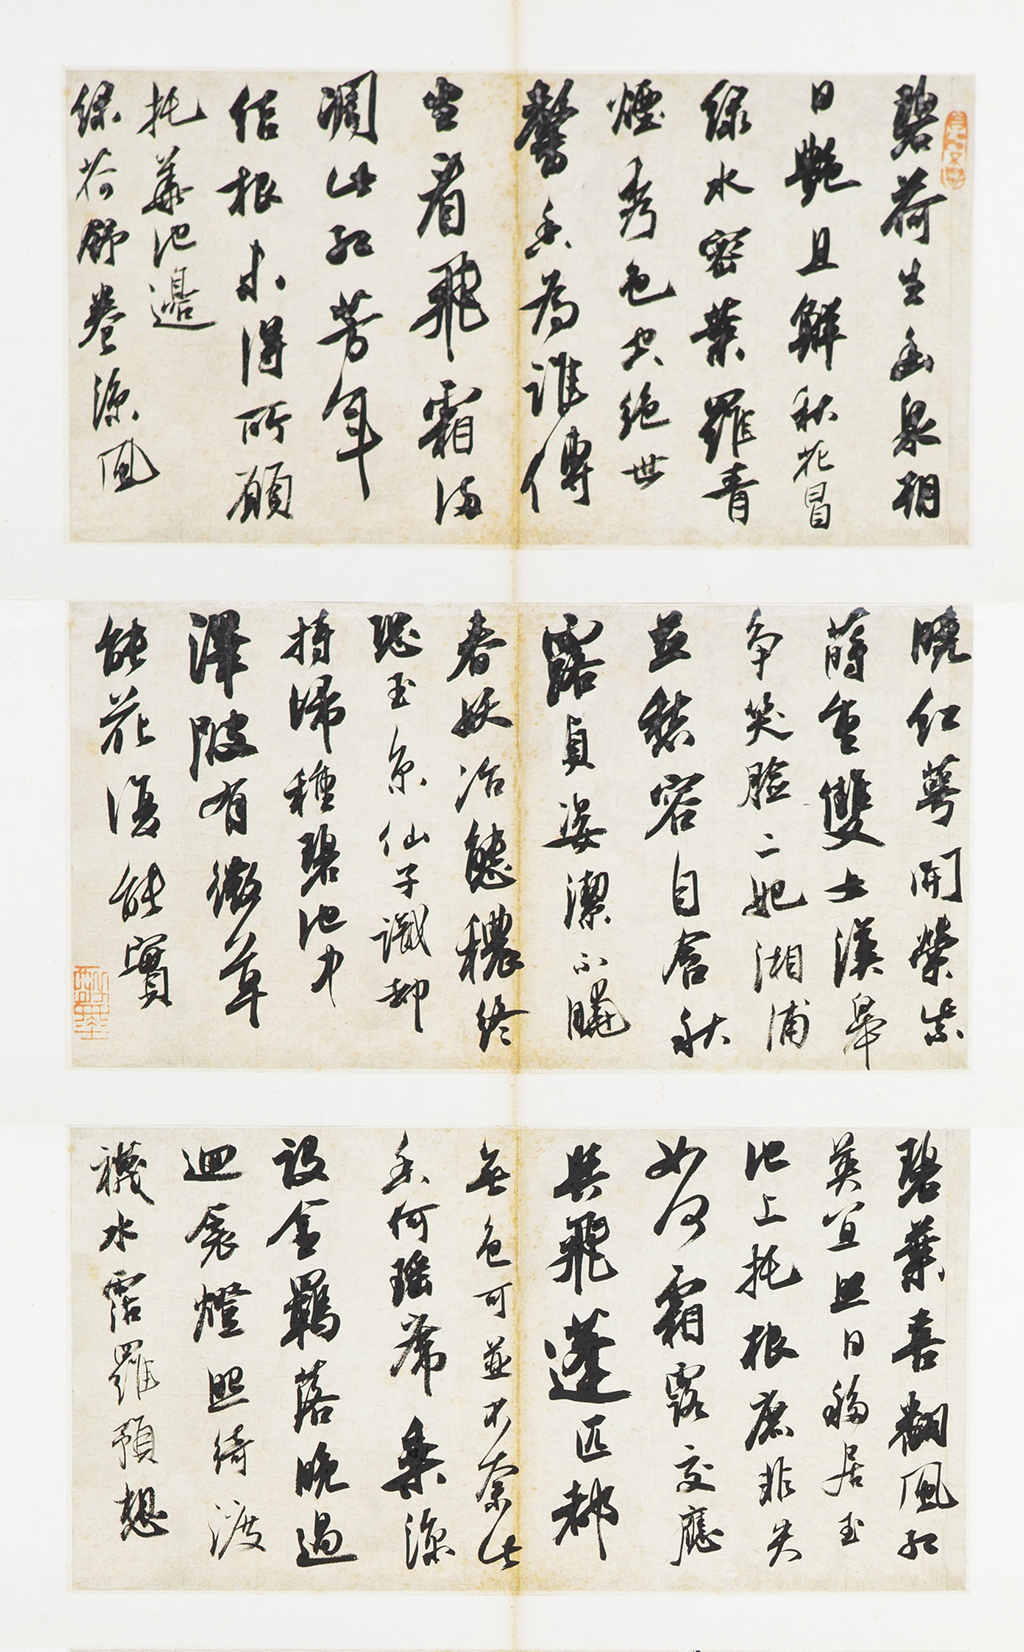 碧荷生幽泉朝
日艷且鮮秋花冒
綠水密葉羅青
煙秀色空絕世
馨香為誰傳
坐看飛霜滿
凋此紅芳年
結根未得所願
托華池邊
綠荷舒卷涼風
曉紅萼開縈紫
菂重雙女漢皋
爭笑臉二妃湘浦
並愁容自含秋
露貞姿潔不曉
春妖冶態穠終
恐玉京仙子識却
持歸種碧池中
澤陂有微草
能花復能實
碧葉喜翻風紅
英宜照日移居玉
池上托根庶非失
如何霜露交應
與飛蓬匹都
無色可並不奈此
香何瑤席乘涼
設金羈落晚過
迴衾燈照綺渡
襪水沾羅預想